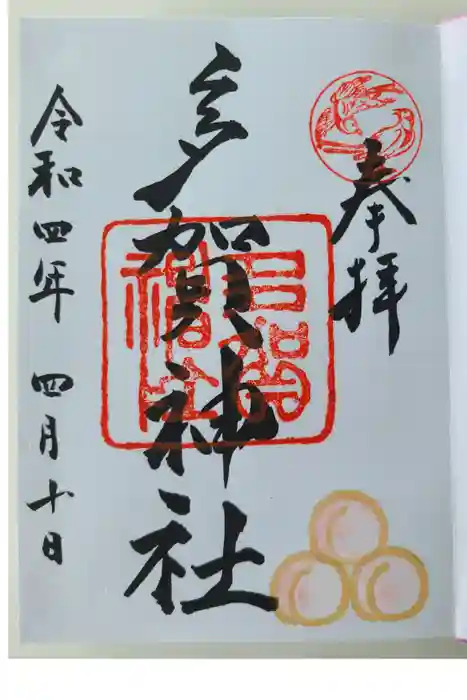 奉拝
多賀神社
令和四年 四月十日